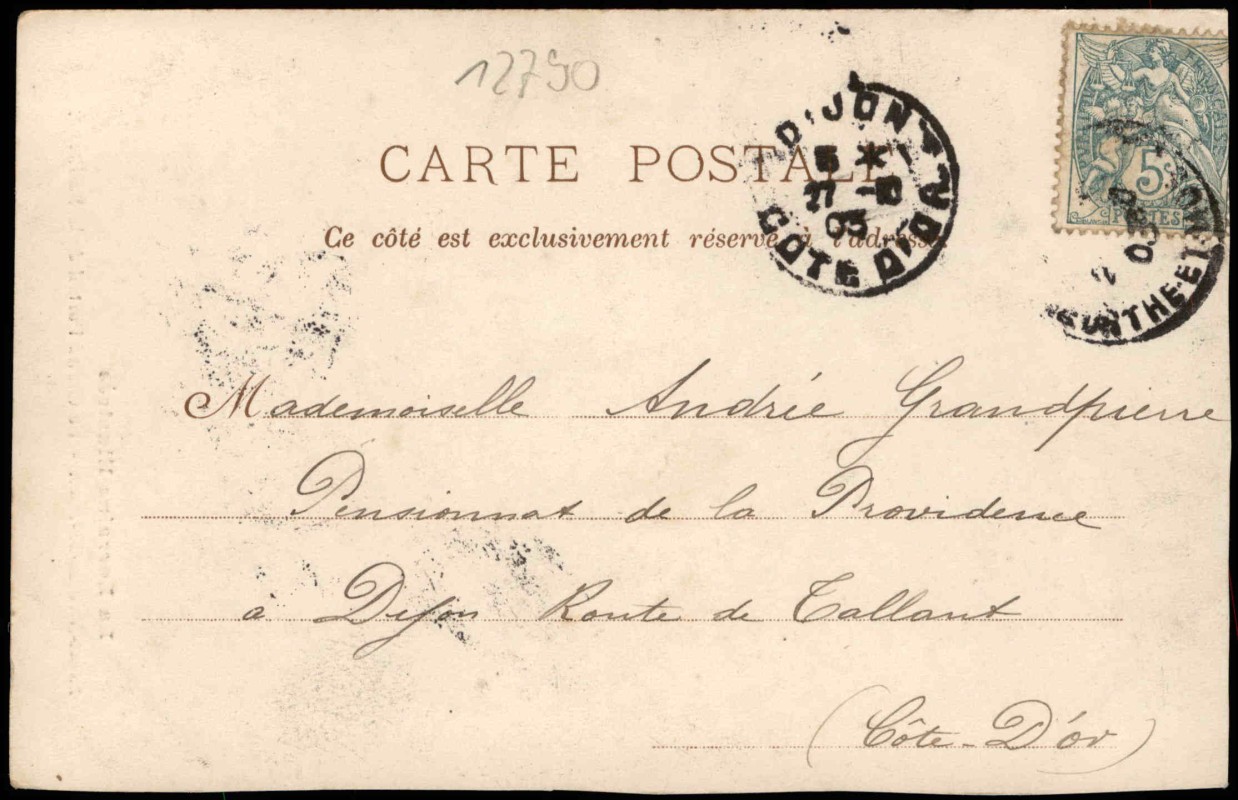 12790
CARTE POSTALE
Ce côté est exclusivement réservé à l'adresse.
DIJON
5 *
27 -10
03
COTE D'OR
5c
POSTES
03
Mademoiselle Andrée Grandpierre
Pensionnat de la Providence
à Dijon Route de Tallant
(Côte-D'or)